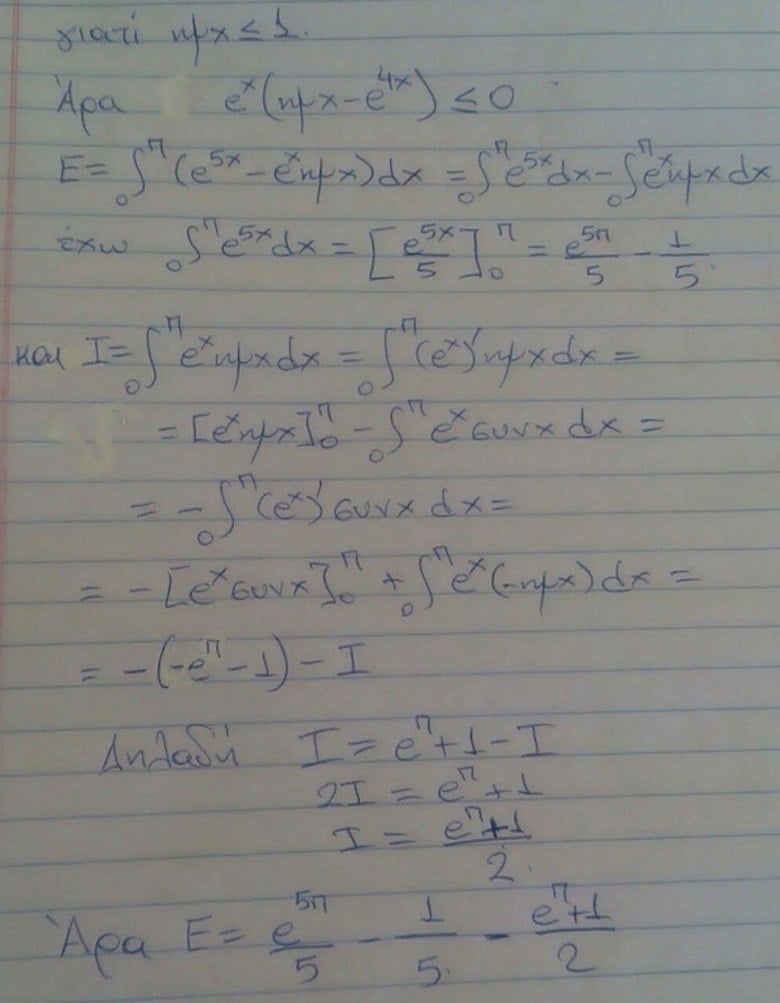 γιατί ημx ≤ 1.
Άρα e^x(ημx - e^{4x}) ≤ 0
E = ₀∫^π (e^{5x} - e^x ημx)dx = ₀∫^π e^{5x}dx - ₀∫^π e^x ημx dx
έχω ₀∫^π e^{5x}dx = [e^{5x}/5]₀^π = e^{5π}/5 - 1/5.
και I = ₀∫^π e^x ημx dx = ₀∫^π (e^x)' ημx dx =
= [e^x ημx]₀^π - ₀∫^π e^x συνx dx =
= - ₀∫^π (e^x)' συνx dx =
= - [e^x συνx]₀^π + ₀∫^π e^x(-ημx) dx =
= - (-e^π - 1) - I
Δηλαδή I = e^π + 1 - I
2I = e^π + 1
I = (e^π + 1)/2.
Άρα E = e^{5π}/5 - 1/5. - (e^π + 1)/2